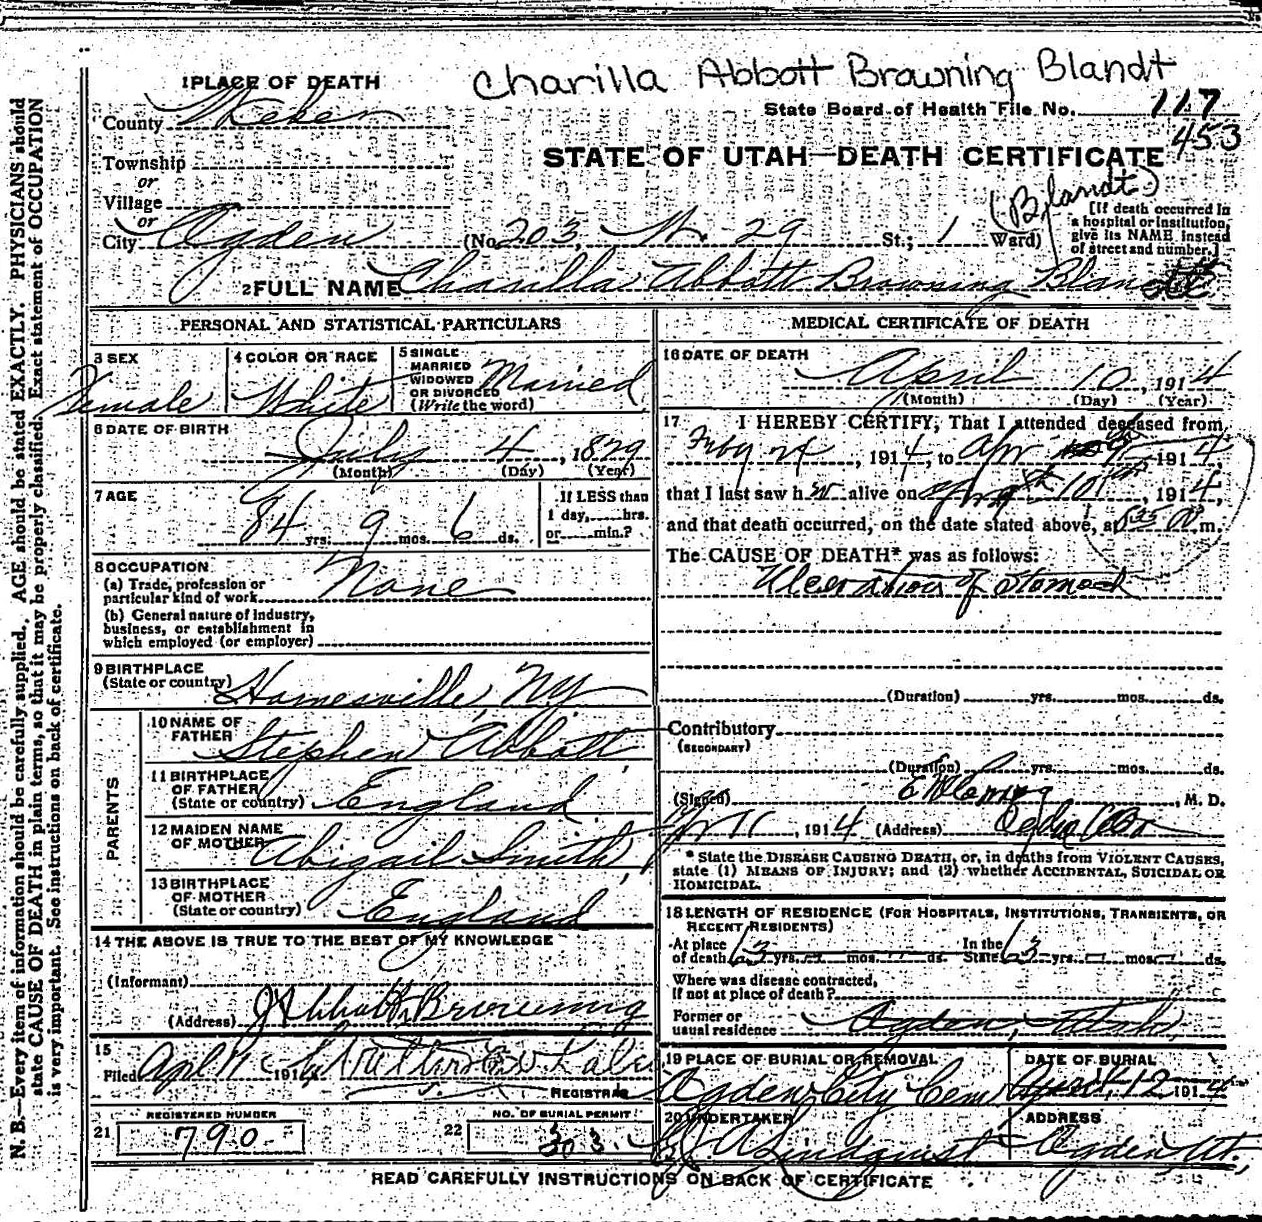 Charilla Abbott Browning Blandt
1 PLACE OF DEATH
State Board of Health File No. 117
453
County Weber
STATE OF UTAH—DEATH CERTIFICATE
Township
or
Village
or
(Blandt)
City Ogden (No. 203, W. 29 St.; 1 Ward)
[If death occurred in
a hospital or institution,
give its NAME instead
of street and number.]
2 FULL NAME Charilla Abbott Browning Blandt
PERSONAL AND STATISTICAL PARTICULARS
3 SEX
Female
4 COLOR OR RACE
White
5 SINGLE
MARRIED
WIDOWED
OR DIVORCED
(Write the word)
Married
6 DATE OF BIRTH
July 4, 1829
(Month) (Day) (Year)
7 AGE
84 yrs. 9 mos. 6 ds.
If LESS than
1 day, hrs.
or min.?
8 OCCUPATION
(a) Trade, profession or
particular kind of work None
(b) General nature of industry,
business, or establishment in
which employed (or employer)
9 BIRTHPLACE
(State or country) Hornesville, NY
PARENTS
10 NAME OF
FATHER
Stephen Abbott
11 BIRTHPLACE
OF FATHER
(State or country) England
12 MAIDEN NAME
OF MOTHER Abigail Smith
13 BIRTHPLACE
OF MOTHER
(State or country) England
14 THE ABOVE IS TRUE TO THE BEST OF MY KNOWLEDGE
(Informant)
(Address) J Abbott Browning
15
Filed Apl 11 1914 Walter
REGISTRAR
REGISTERED NUMBER
21 790
NO. OF BURIAL PERMIT
22 303
MEDICAL CERTIFICATE OF DEATH
16 DATE OF DEATH
April 10, 1914
(Month) (Day) (Year)
17 I HEREBY CERTIFY, That I attended deceased from
Feby 24, 1914, to Apr 1914,
that I last saw her alive on 10th, 1914,
and that death occurred, on the date stated above, at m.
The CAUSE OF DEATH* was as follows:
Ulceration of Stomach
(Duration) yrs. mos. ds.
Contributory
(SECONDARY)
(Duration) yrs. mos. ds.
(Signed) , M. D.
Apr 11, 1914 (Address) Ogden
* State the DISEASE CAUSING DEATH, or, in deaths from VIOLENT CAUSES,
state (1) MEANS OF INJURY; and (2) whether ACCIDENTAL, SUICIDAL OR
HOMICIDAL.
18 LENGTH OF RESIDENCE (FOR HOSPITALS, INSTITUTIONS, TRANSIENTS, OR
RECENT RESIDENTS)
At place
of death 63 yrs. mos. ds.
In the
State 63 yrs. mos. ds.
Where was disease contracted,
If not at place of death?
Former or
usual residence Ogden, Utah
19 PLACE OF BURIAL OR REMOVAL
Ogden City Cem
DATE OF BURIAL
April 12 1914
20 UNDERTAKER
A Lindquist
ADDRESS
Ogden, Ut.
READ CAREFULLY INSTRUCTIONS ON BACK OF CERTIFICATE
N. B.—Every item of information should be carefully supplied. AGE should be stated EXACTLY. PHYSICIANS should
state CAUSE OF DEATH in plain terms, so that it may be properly classified. Exact statement of OCCUPATION
is very important. See instructions on back of certificate.